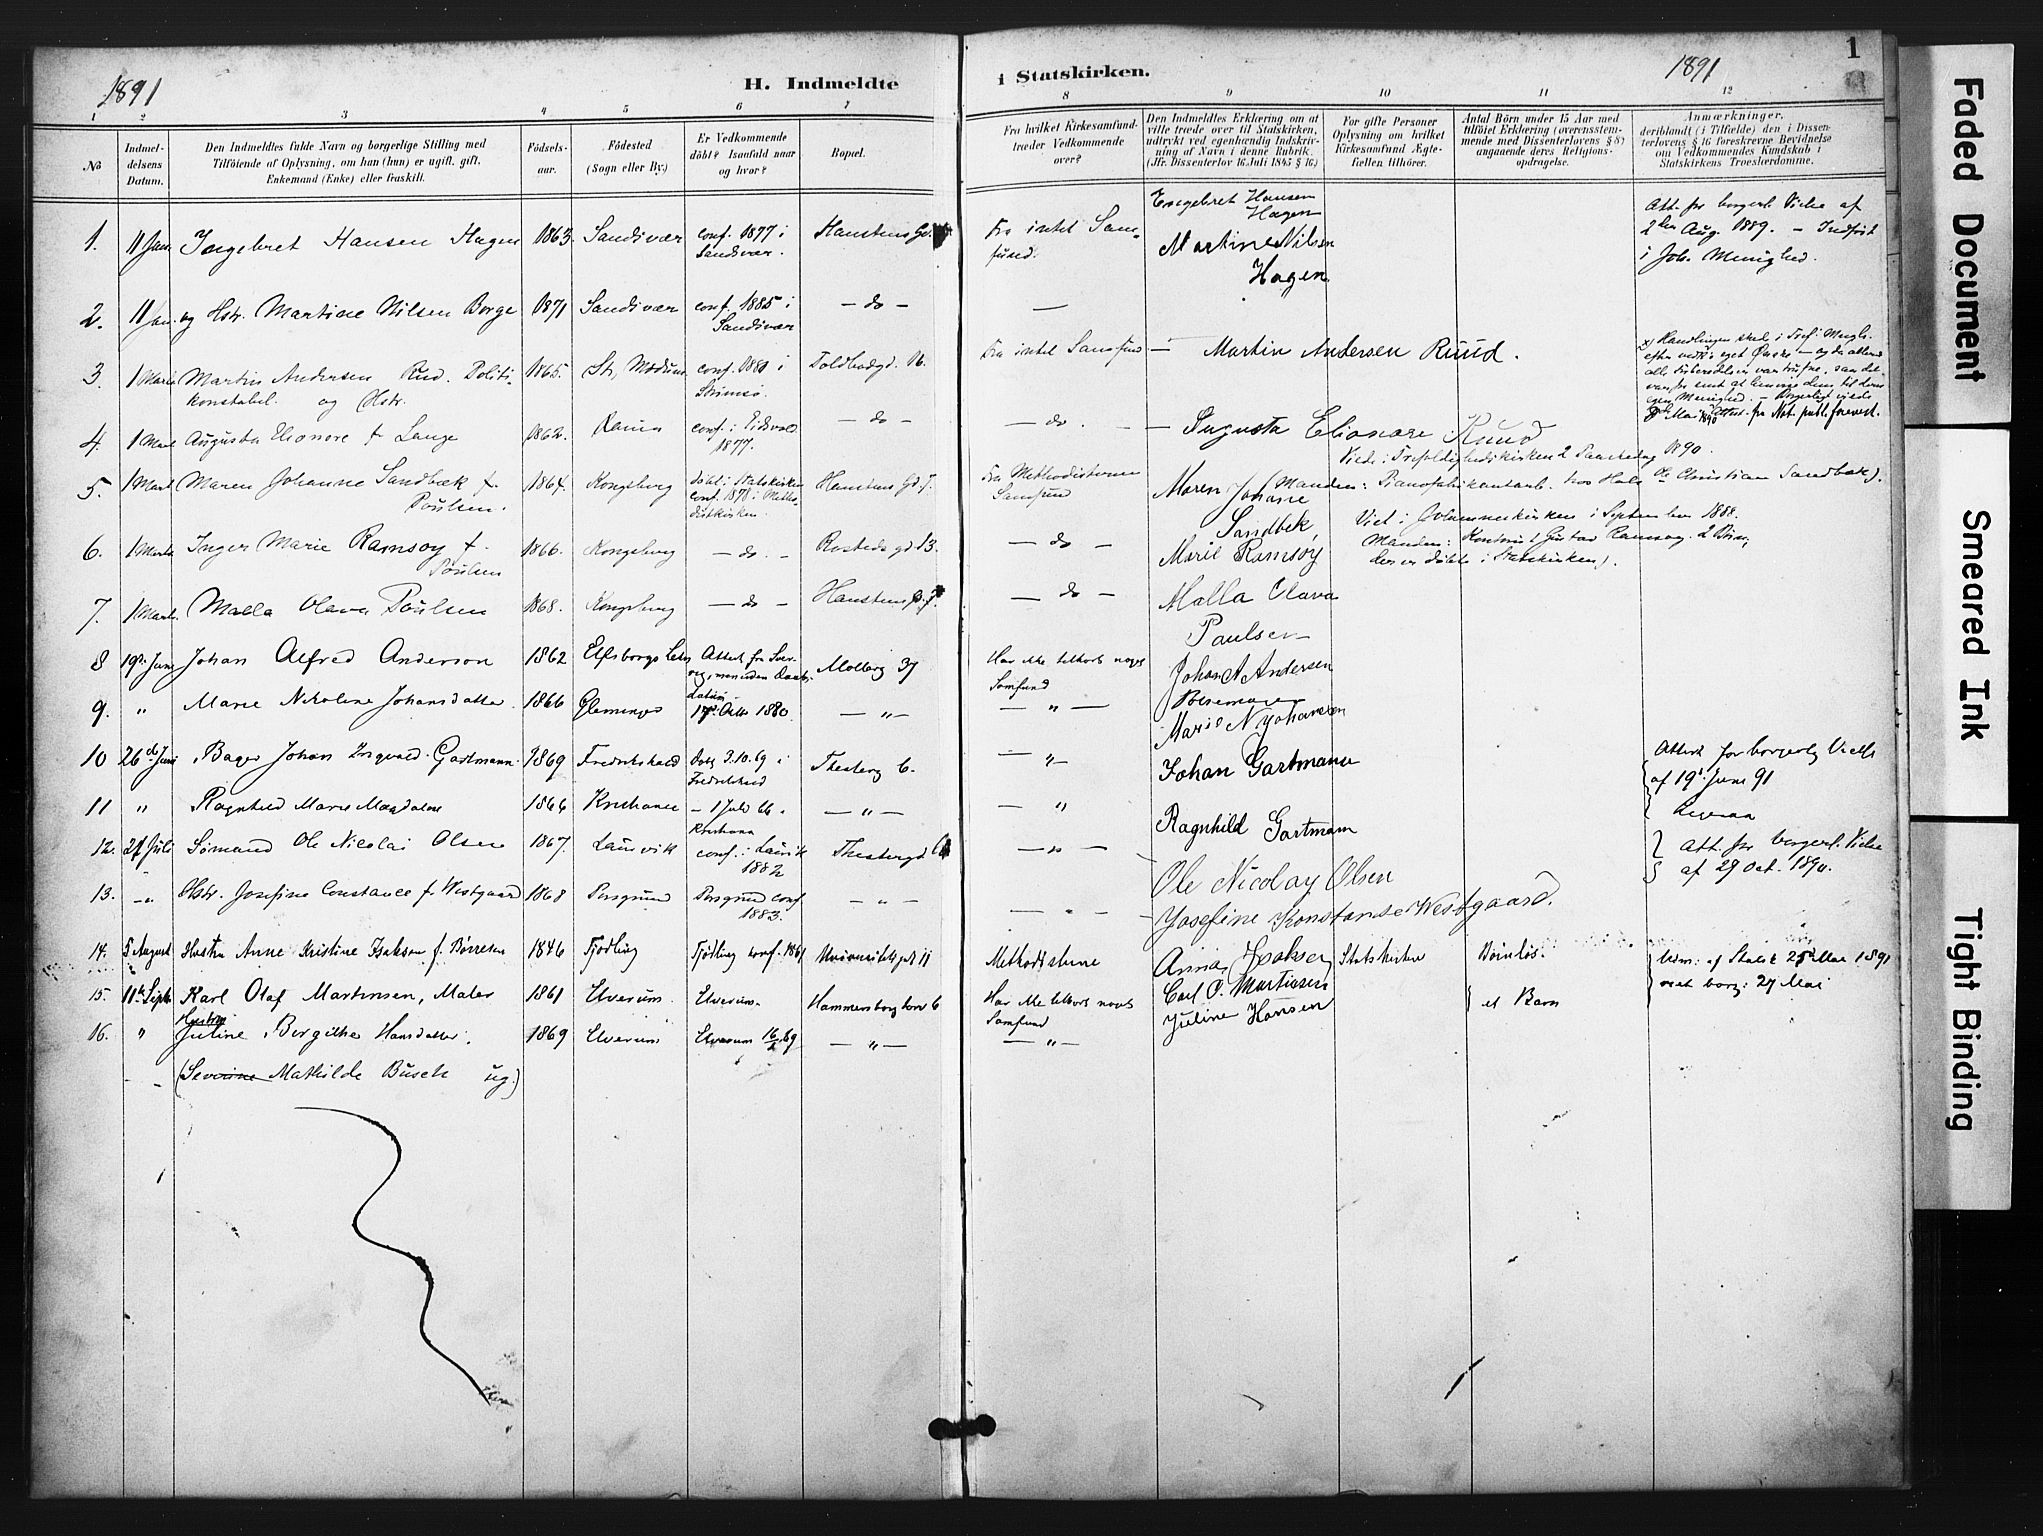 1891
H. Indmeldte
i Statskirken.
1891
1
1 2 3 4 5 6 7
8 9 10 11 12
No
Indmel-
delsens
Datum.
Den Indmeldtes fulde Navn og borgerlige Stilling med
Tilføiende af Oplysning, om han (hun) er ugift, gift,
Enkemand (Enke) eller fraskilt.
Fødsels-
aar.
Fødested
(Sogn eller By.)
Er Vedkommende
döbt? Isaafald naar
og hvor?
Bopæl.
Fra hvilket Kirkesamfund
træder Vedkommende
over?
Den Indmeldtes Erklæring om at
ville træde over til Statskirken,
udtrykt ved egenhændig Indskriv-
ning af Navn i denne Rubrik.
(Jfr. Dissenterlov 16 Juli 1845 § 16.)
For gifte Personer
Oplysning om hvilket
Kirkesamfund Ægte-
fællen tilhører.
Antal Börn under 15 Aar med
tilföiet Erklæring (overensstem-
mende med Dissenterlovens § 8)
angaaende deres Religions-
opdragelse.
Anmærkninger,
deriblandt (i Tilfælde) den i Dissen-
terlovens § 16 foreskrevne Bevidnelse
om Vedkommendes Kundskab i
Statskirkens Troeslærdomme.
1. 11 Jan. Ingebret Hansen Hagen 1863. Sandsvær conf. 1877 i Sandsvær. Hanstens Gd.
Fra intet Sam-
fund.
Engebret Hansen
Hagen
Martine Nilsen
Hagen
Att. for borgerl. Vielse af
2den Aug. 1889. – Indført
i Joh. Menighed.
2. 11 Jan. og Hstr. Martine Nilsen Borge 1871 Sandsvær conf. 1885 i Sandsvær – do –
—
3. 1 Marts Martin Andersen Rud. Politi-
konstabel. og Hstr. 1865. conf. 1881 i Toldbodgd. 16.
Fra intet Samfund – Martin Andersen Ruud.
4. 1 Mart Augusta Elionore f. Lange 1862. conf. i Eidsvold 1877. – do –
– do. – Augusta Elionore Ruud
5. 1 Mart Maren Johanne Sandbæk f.
Poulsen. 1864. Kongsberg döbt i Statskirken
conf. 1878 i Metho-
distkirken. Hanstens Gd. 7.
Fra Methodisternes
Samfund
Maren Johanne
Sandbek,
Viede i Trefoldighedskirken 2 Paaskedag 1890.
(Manden: Pianofabrikantarb. hos Hals Ole Christian Sandbæk).
6. 1 Marts Inger Marie Ramsøy f.
Poulsen 1866. Kongsberg – do. – Rosteds gd. 13.
– do –
Marie Ramsøy
Viet i Johanneskirken i September 1888.
Manden: Gustav Ramsøy. 2 Børn,
der er døbte i Statskirken).
7. 1 Marts. Malla Olava Poulsen 1868. Kongsberg – do – Hanstens gd. 7.
– do –
Malla Olava
Paulsen
8 19de Juni Johan Alfred Anderson 1862 Elfsborgs Len Attest fra Sver-
rig, men uden daabs-
datum Møllerg 37
Har ikke tilhørt noget
Samfund
Johan A Andersen
9. " Marie Nikoline Johansdatter 1866 Glemminge 17de Octb 1880. – " –
– " –
Marie N Johansen
10 26de Juni Bager Johan Ingvald Gartmann 1869 Fredrikshald døbt 3.10.69 i
Fredrikshald Thesberg 6.
– " –
Johan Gartmann
Attest for borgerlig Vielse
af 19de Juni 91
11 " Ragnhild Marie Magdalene 1866 Kristiania – 1 Juli 66.
Kristiania – " –
– "
Ragnhild Gartmann
Ligesaa
12. 27 Juli Sømand Ole Nicolai Olsen 1867. Laurvik conf. i Laurvik
1882
– " –
Ole Nicolay Olsen
Att. for borgerl. Vielse
af 29 Oct. 1890.
13. – " Hstr. Josefine Constance f. Westgaard 1868 Porsgrund Porsgrund conf.
1883. – " –
– " –
Josefine Konstanse Westgaard.
14. 5 August Hustru Anne Kristine Isaksen f. Børresen 1846 Fjødling Fjødling conf. 1861 Universitetsgd 11
Methodisterne
Anna Isaksen
Statskirken
Børnløs.
Udm. af Statsk 25de Mai 1891
viet borg: 27 Mai
15. 11te Septb Karl Olaf Martinsen, Maler 1861 Elverum. Elverum. Hammersborg torv 6
Har ikke tilhørt noget
Samfund
Carl O. Martinsen
et Barn
16. " Hustru
Juline Birgithe Hansdatter. 1869 Elverum Elverum 16/2 69 – " –
– " –
Juline Hansen
– – (Severine Mathilde Busch ug.)
Faded Document
Smeared Ink
Tight Binding